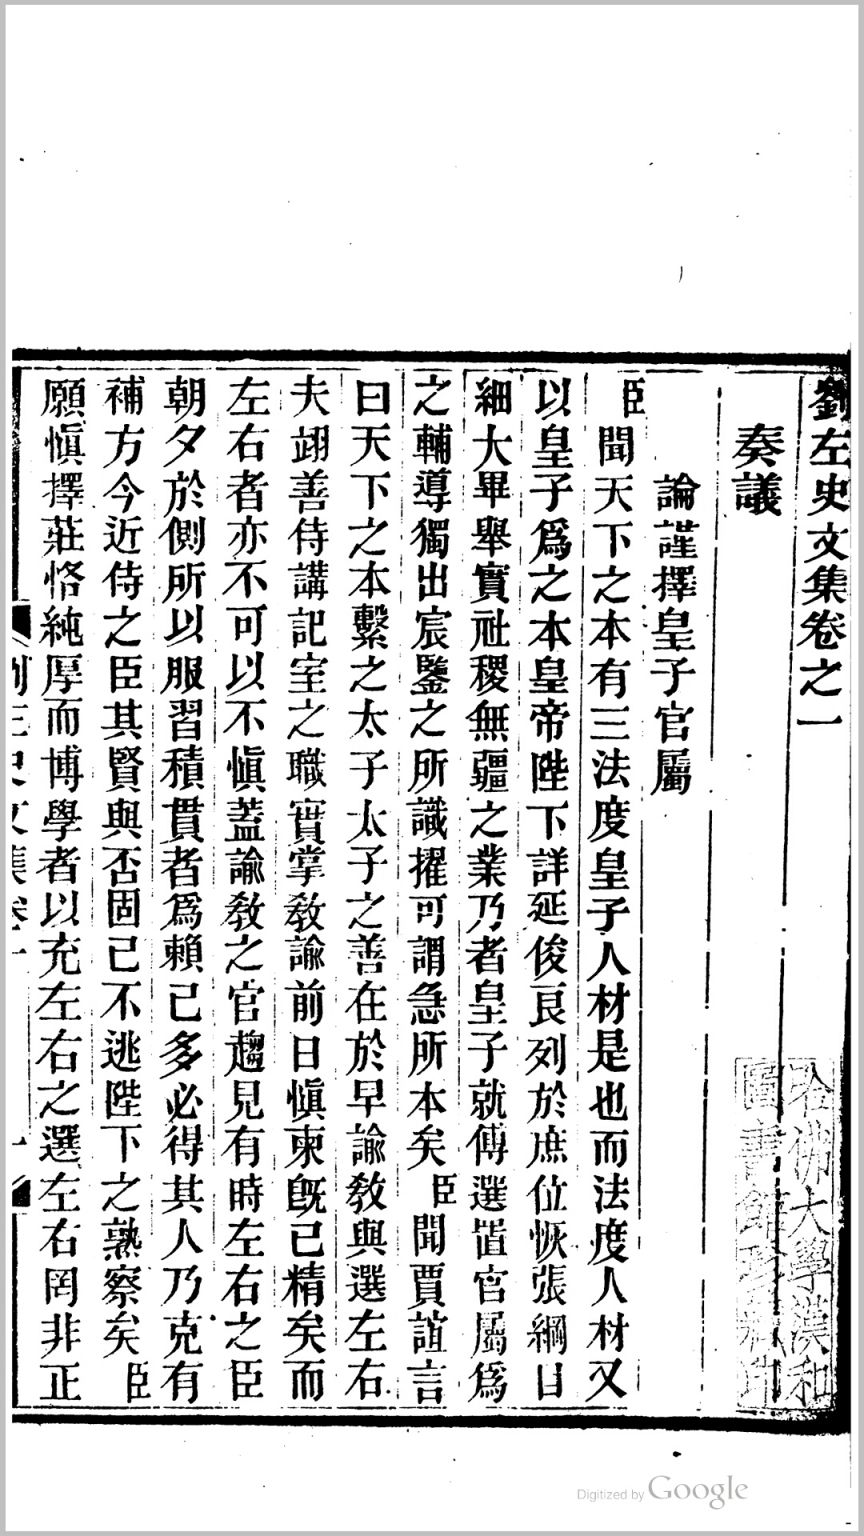 劉左史文集卷之一
奏議
論謹擇皇子官屬
臣聞天下之本有三法度皇子人材是也而法度人材又
以皇子爲之本皇帝陛下詳延俊良列於庶位恢張綱目
細大畢舉實社稷無疆之業乃者皇子就傅選置官屬爲
之輔導獨出宸鑒之所識擢可謂急所本矣臣聞賈誼言
曰天下之本繫之太子太子之善在於早諭教與選左右
夫翊善侍講記室之職實掌教諭前日愼柬旣已精矣而
左右者亦不可以不愼蓋諭教之官趨見有時左右之臣
朝夕於側所以服習積貫者爲賴已多必得其人乃克有
補方今近侍之臣其賢與否固已不逃陛下之熟察矣臣
願愼擇莊恪純厚而博學者以充左右之選左右罔非正
劉左史文集卷一
一
哈佛大學漢和
圖書館珍藏印
Digitized by Google